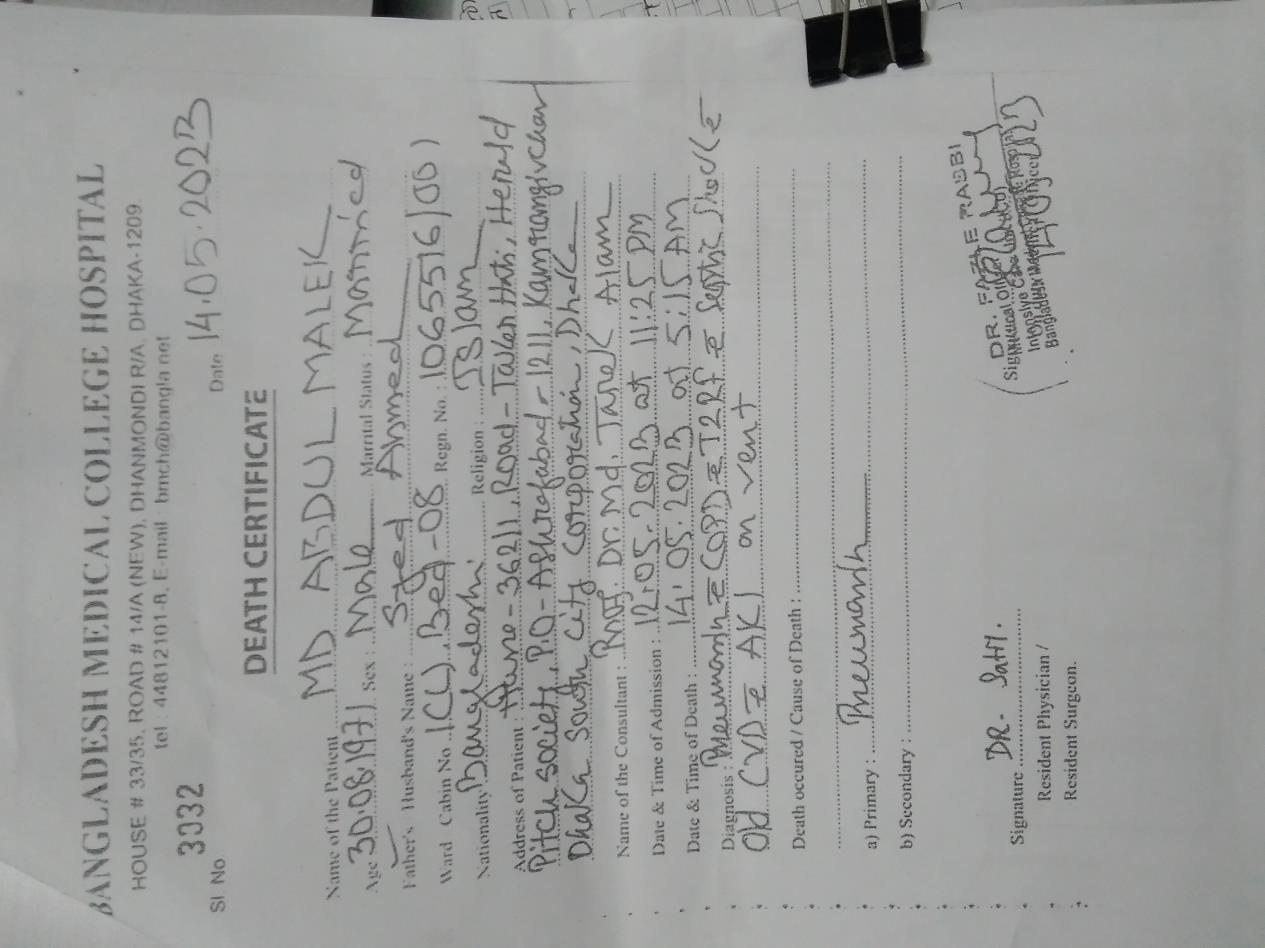 BANGLADESH MEDICAL COLLEGE HOSPITAL
HOUSE # 33/35, ROAD # 14/A (NEW), DHANMONDI R/A, DHAKA-1209.
tel : 44812101-8, E-mail : bmch@bangla net
SI No. 3032 Date 14.05.2023
DEATH CERTIFICATE
Name of the Patient MD ABDUL MALEK
Age 30.08.1971 Sex : Male Marrital Status : Married
Father's / Husband's Name : Syed Ahmed
Ward Cabin No ICU, Bed-08 Regn. No. : 1065516/001
Nationality Bangladeshi Religion : Islam
Address of Patient : Home - 36211, Road - Hati, Herald
Pitch society, P.O - Ashrafabad - 1211, Kamrangirchar
Dhaka South City Corporation, Dhaka
Name of the Consultant : Prof. Dr. Md. Tarek Alam
Date & Time of Admission : 12.05.2023 at 11:25 PM
Date & Time of Death : 14.05.2023 at 5:15 AM
Diagnosis : Pneumonia c COPD c T2RF c Septic Shock c
Old CVD c AKI on vent
Death occured / Cause of Death :
a) Primary : Pneumonia
b) Secondary :
DR. FAZLE RABBI
Signature DR.
Resident Physician /
Resident Surgeon.